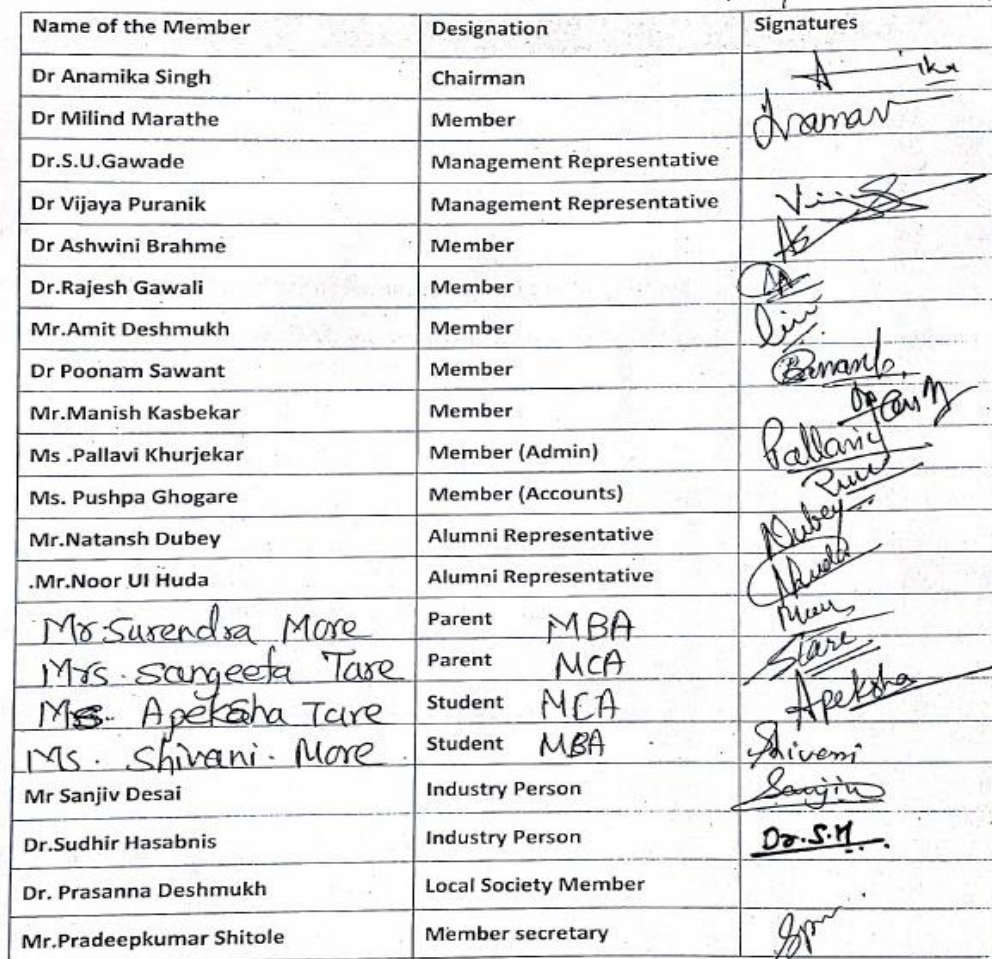 Name of the Member Designation Signatures
Dr Anamika Singh Chairman
Dr Milind Marathe Member
Dr.S.U.Gawade Management Representative
Dr Vijaya Puranik Management Representative
Dr Ashwini Brahme Member
Dr.Rajesh Gawali Member
Mr.Amit Deshmukh Member
Dr Poonam Sawant Member
Mr.Manish Kasbekar Member
Ms .Pallavi Khurjekar Member (Admin) Pallavi
Ms. Pushpa Ghogare Member (Accounts)
Mr.Natansh Dubey Alumni Representative Dubey
.Mr.Noor Ul Huda Alumni Representative Nhuda
Mr. Surendra More Parent MBA
Mrs. Sangeeta Tare Parent MCA Stare
Ms. Apeksha Tare Student MCA Apeksha
Ms. Shivani. More Student MBA Shivani
Mr Sanjiv Desai Industry Person Sanjiv
Dr.Sudhir Hasabnis Industry Person Dr.S.H.
Dr. Prasanna Deshmukh Local Society Member
Mr.Pradeepkumar Shitole Member secretary